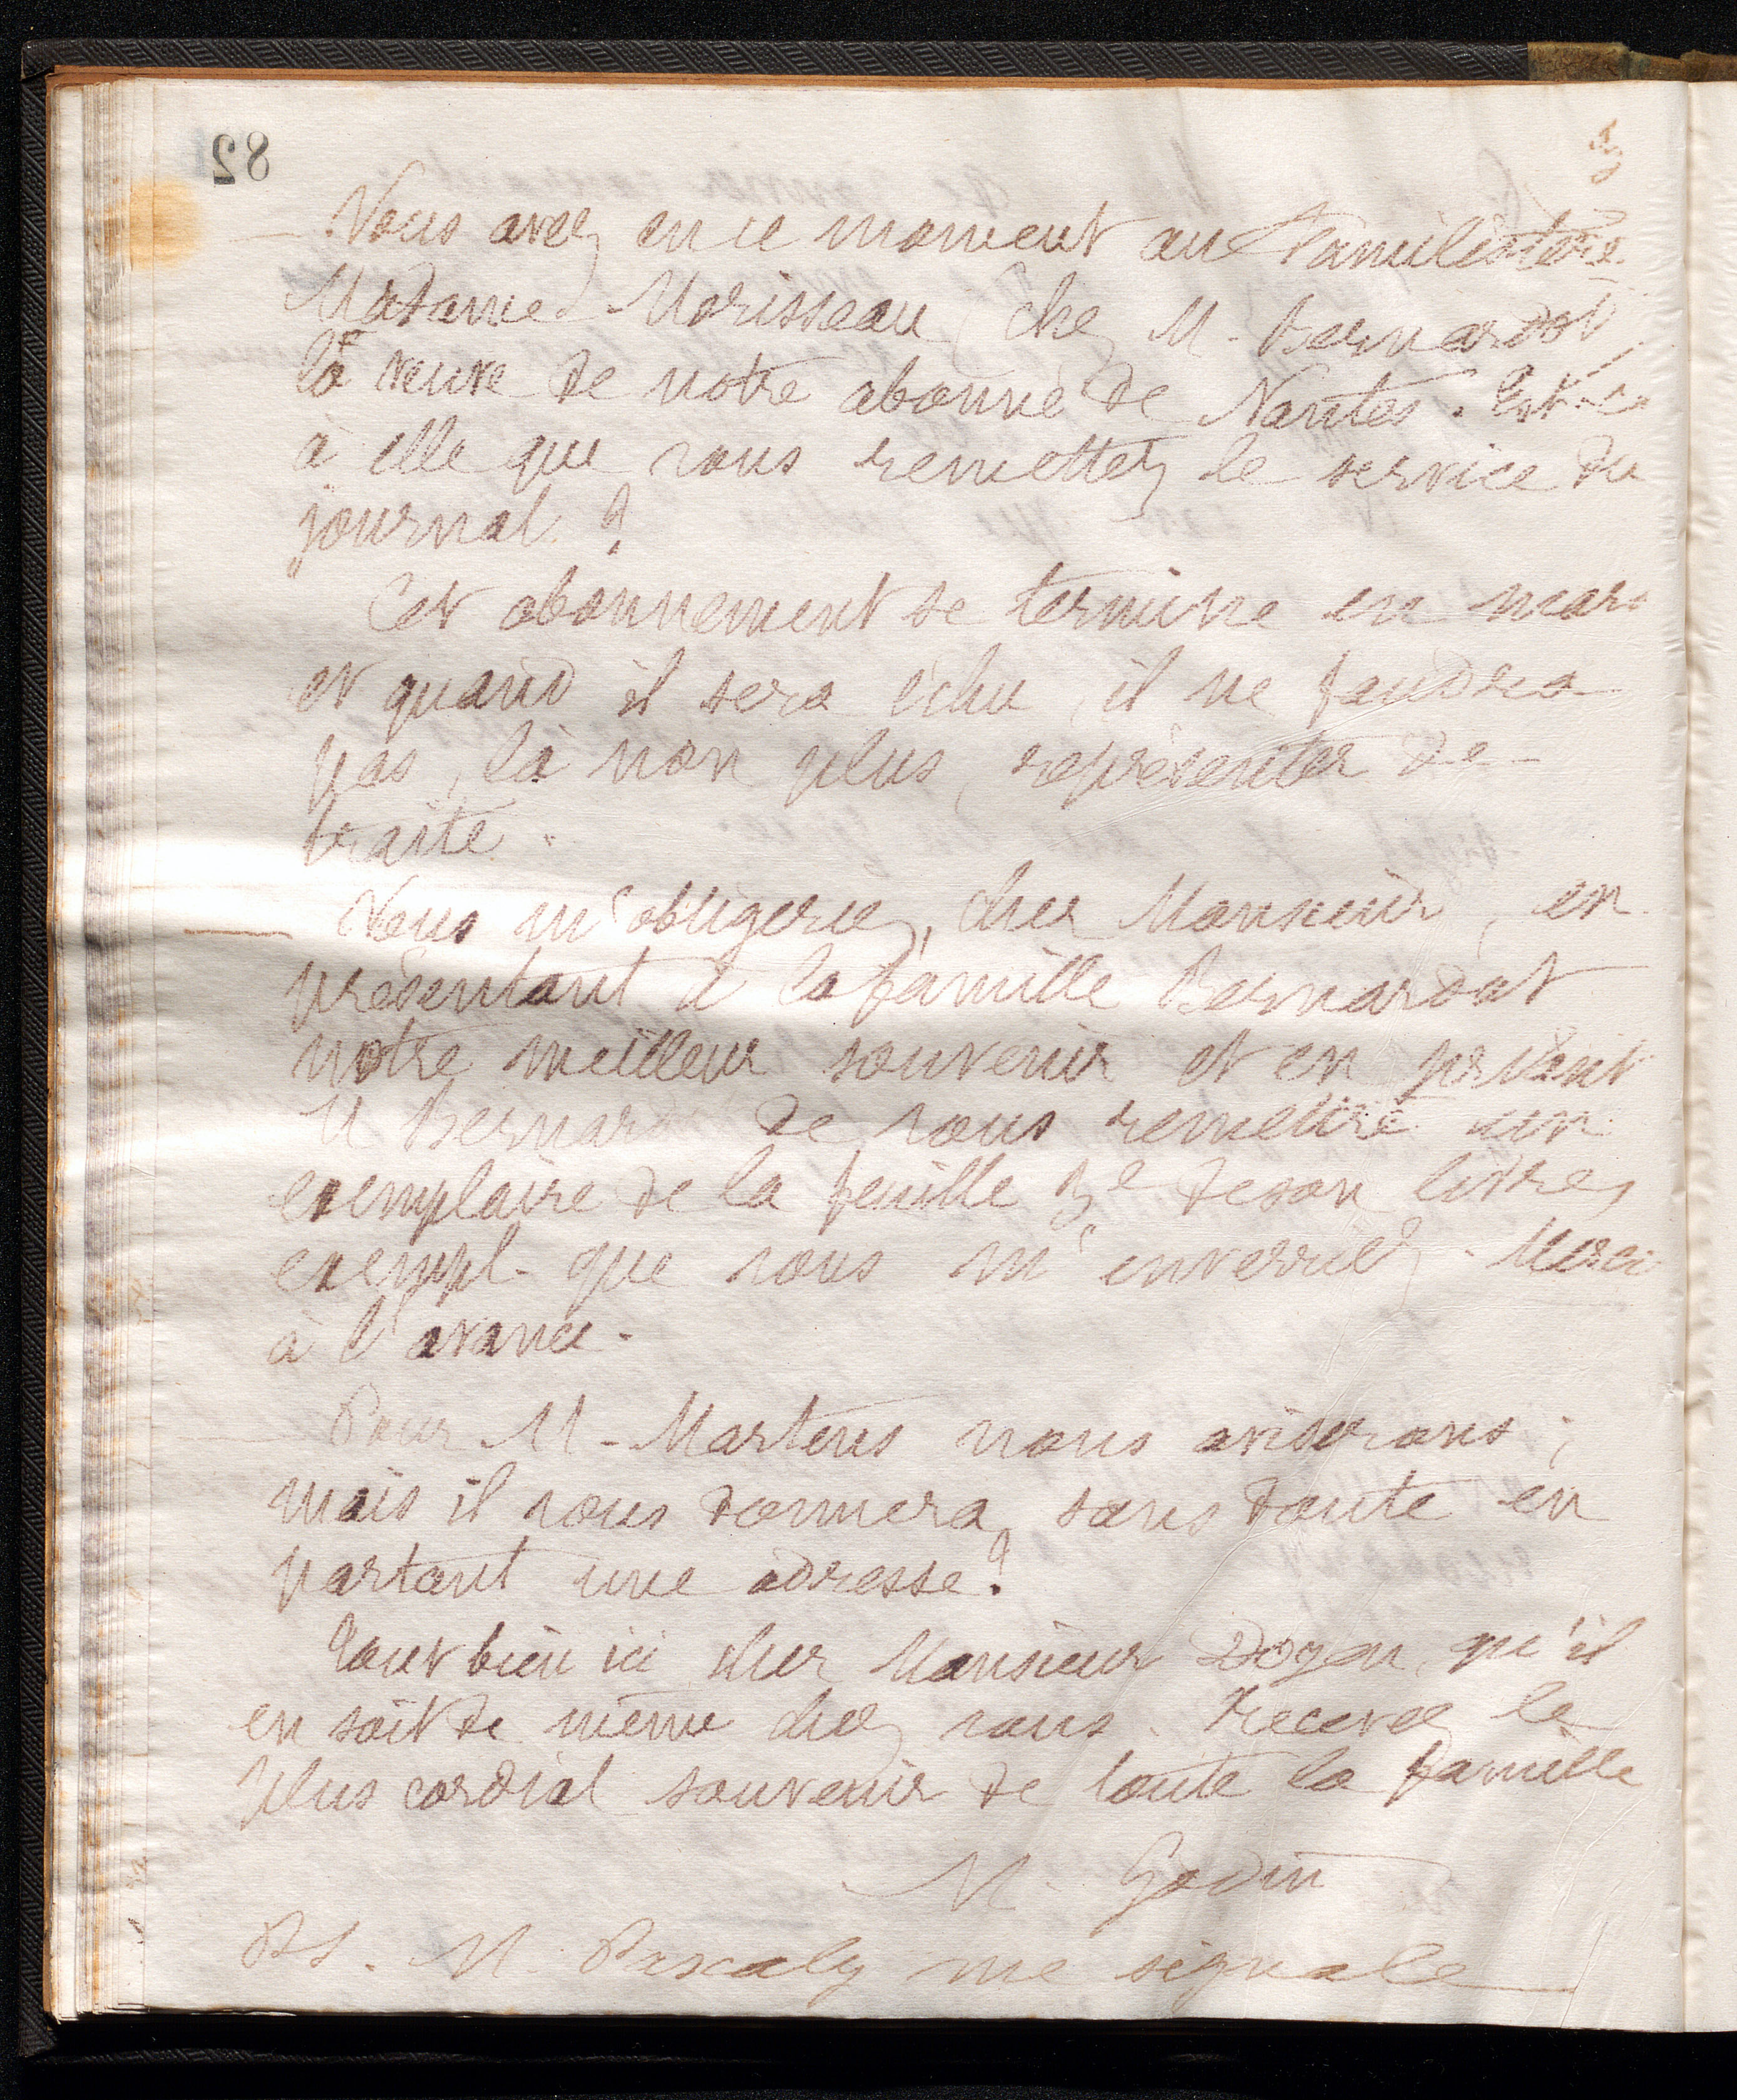 82
3
— Vous avez en ce moment au Familistère
Madame Morisseau, chez M. Bernardot,
la veuve de notre abonné de Nantes. Est-ce
à elle que vous remettez le service du
journal ?
Cet abonnement se termine en mars
et quand il sera échu, il ne faudra
pas, là non plus, représenter de
traite.
— Vous m'obligeriez, cher Monsieur, en
présentant à la famille Bernardot
notre meilleur souvenir et en priant
M Bernardot de vous remettre un
exemplaire de la feuille 3e de son livre,
exempl. que vous m'enverriez. Merci
à l'avance.
— Pour M. Martens nous aviserons ;
mais il vous donnera sans doute en
partant une adresse ?
Tout bien ici cher Monsieur Doyen, qu'il
en soit de même chez vous. Recevez le
plus cordial souvenir de toute la famille
M. Godin
PS. M. Pascaly me signale